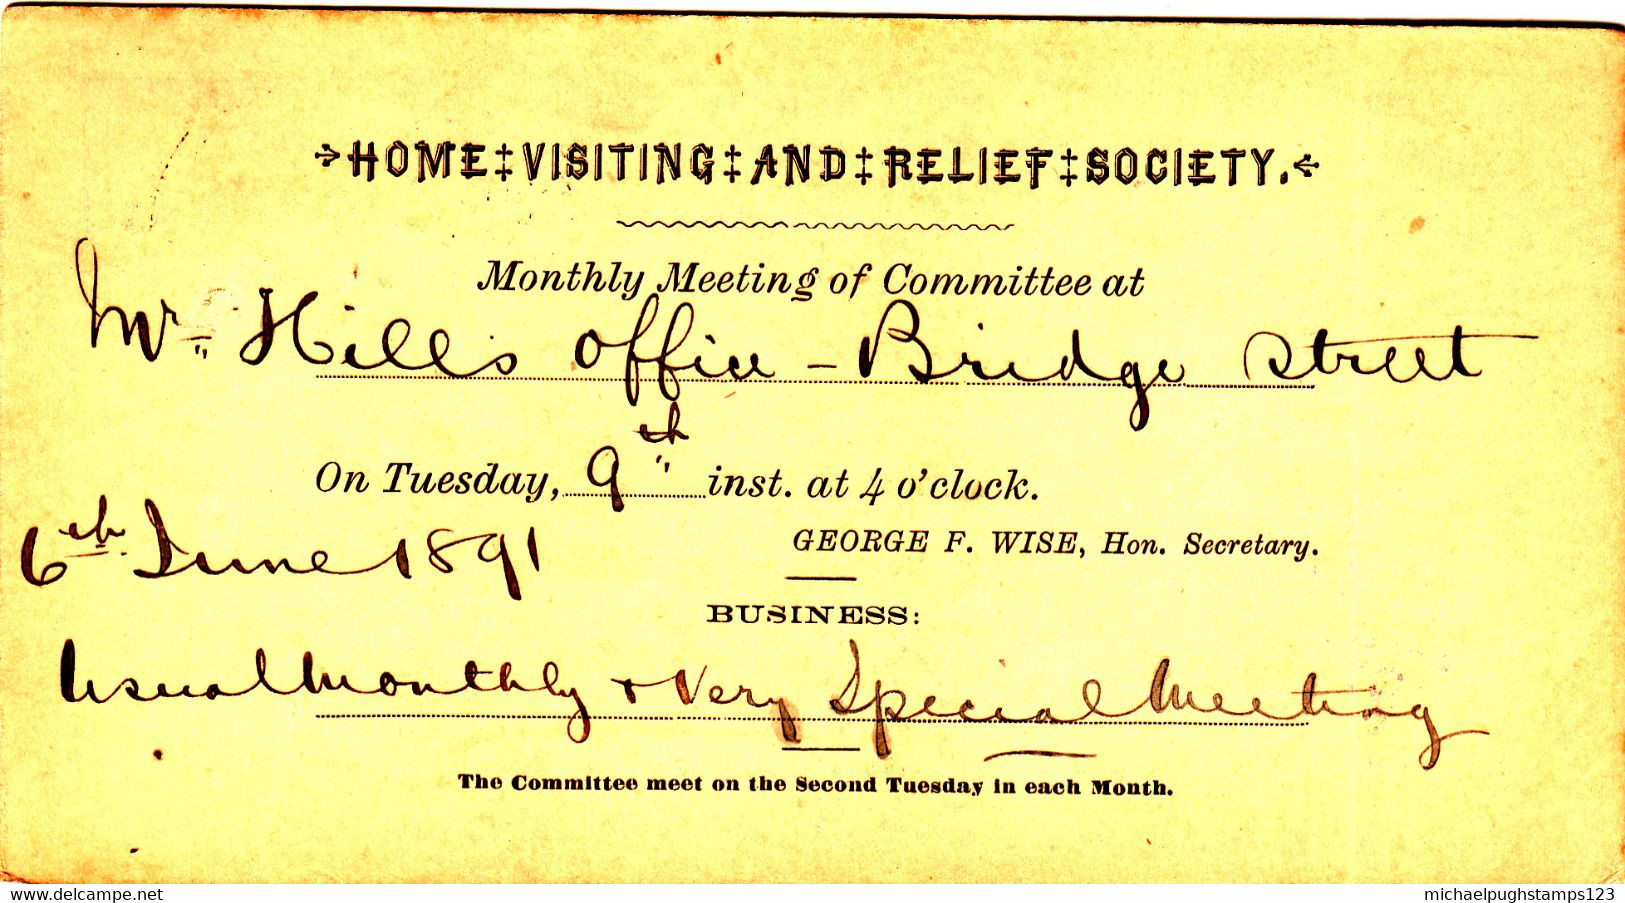 HOME‡VISITING‡AND‡RELIEF‡SOCIETY.
Monthly Meeting of Committee at
Mr. Hills office - Bridge Street
On Tuesday, 9th inst. at 4 o'clock.
6th June 1891
GEORGE F. WISE, Hon. Secretary.
BUSINESS:
Usual Monthly & Very Special Meeting
The Committee meet on the Second Tuesday in each Month.
delcampe.net
michaelpughstamps123